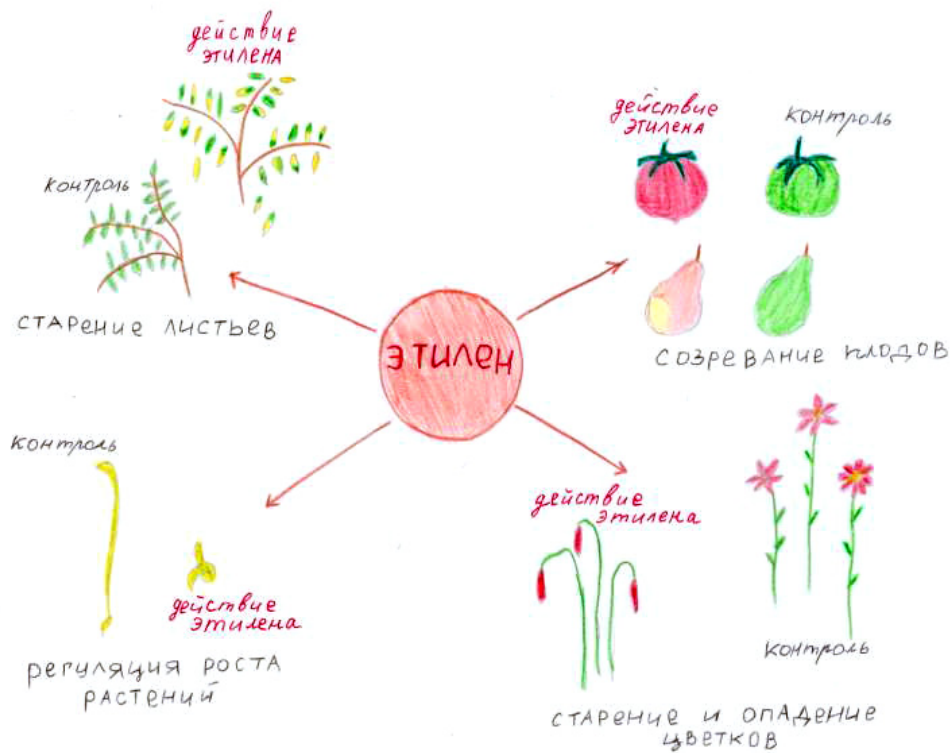 действие
ЭТИЛЕНА
контроль
СТАРЕНИЕ ЛИСТЬЕВ
действие
ЭТИЛЕНА
контроль
СОЗРЕВАНИЕ ПЛОДОВ
ЭТИЛЕН
контроль
действие
ЭТИЛЕНА
РЕГУЛЯЦИЯ РОСТА
РАСТЕНИЙ
действие
этилена
контроль
СТАРЕНИЕ И ОПАДЕНИЕ
ЦВЕТКОВ